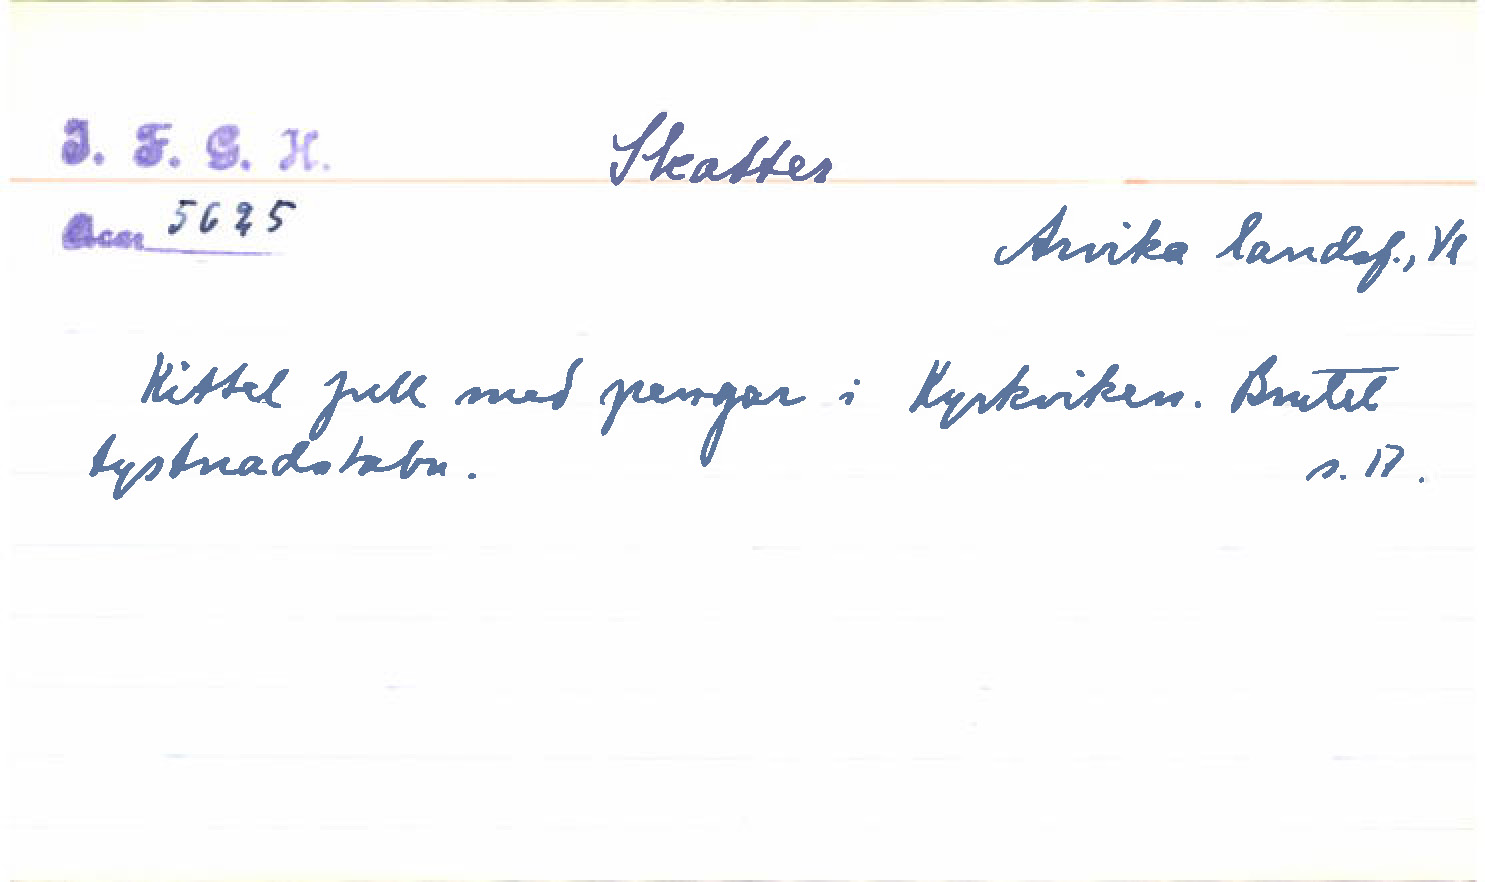 I. F. G. H.
Skatter
Acc. 5625
Arvika landsf., Vl
Kittel full med pengar i Kyrkviken. Brutet
tystnadstabu.
s. 17.